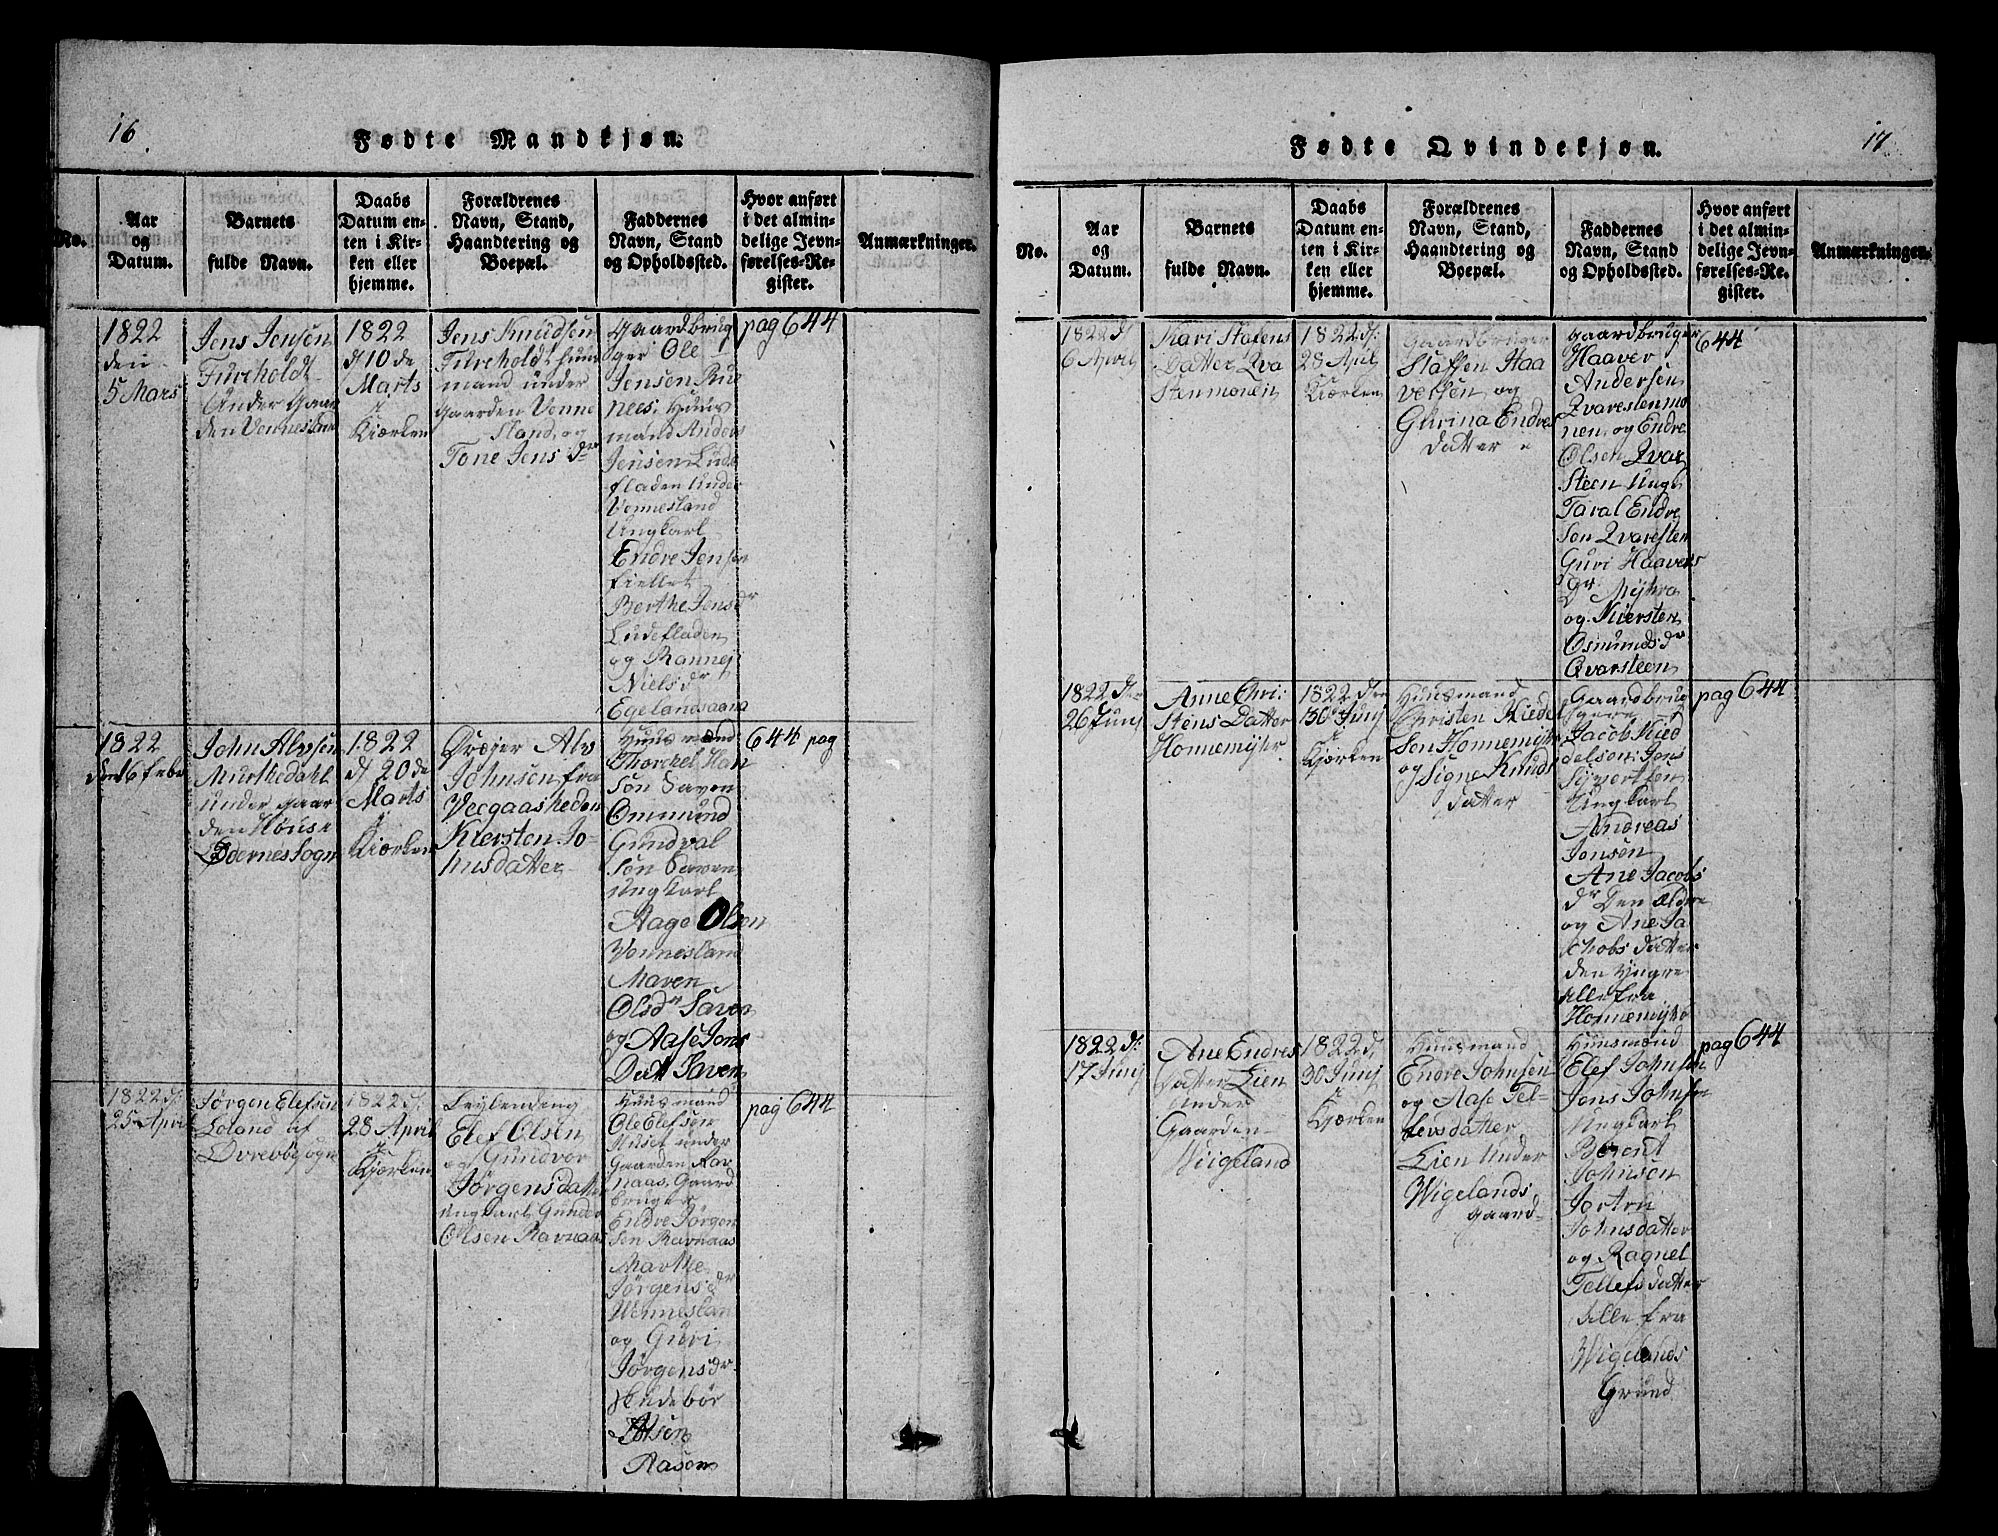 16
Fødte Mandkjøn.
No.
Aar
og
Datum.
Barnets
fulde Navn.
Daabs
Datum en-
ten i Kir-
ken eller
hjemme.
Forældrenes
Navn, Stand,
Haandtering og
Boepæl.
Faddernes
Navn, Stand
og Opholdssted.
Hvor anført
i det almin-
delige Jevn-
førelses-Re-
gister.
Anmærkninger.
1822
den
5 Mars
Jens Jensen
Fureholdt
Under Gaar
den Vennesland
1822
d 10 de
Marts
i
Kiørken
Jens Knudsen
Fureholdt huus
mand under
Gaarden Venne
sland, og
Tone Jens dr
Gaardbrug
ger Ole
Jensen Rug
nees, Huus
mand Anders
Jensen Lude
fladen under
Vennesland
Ungkarl
Endre Jensen
Fiellet
Berthe Jensdr
Ludefladen
og Rannei
Niels dr
Egelandsaana
pag 644
1822
den 6 febr
John Alvsen
under Gaar
den
Sogn
1822
d 20 de
Marts
i
Kiørken
Alv
Johnsen fra
Veegaasheden
Kiersten Jo-
hnsdatter
Huusmænd
Thorchel Han
søn Saven
Ommund
Gundval
søn Saven
ungkarl
Aage Olsen
Vennesland
Maven
Olsdr Saven
og Aase Jons
Datt Saven
644 pag
1822 d:
25 Apri
Jørgen Elefsen
Loland af
Øvrebø sogn
1822 d:
28 April
i
Kjørken
Leylending
Elef Olsen
og Gundvor
Jørgensdatter
ungkarl Gunder
Olsen Ravnaas
Huusmand
Ole Elefsen
under
Gaarden Rav
naas, Gaard
bruger
Endre Jørgen
sen Ravnaas
Marthe
Jørgens dr
Wennesland
og Guri
Jørgens dr
Aasen
pag 644
17
Fødte Qvindekjøn.
No.
Aar
og
Datum.
Barnets
fulde Navn.
Daabs
Datum en-
ten i Kir-
ken eller
hjemme.
Forældrenes
Navn, Stand,
Haandtering og
Boepæl.
Faddernes
Navn, Stand
og Opholdssted.
Hvor anført
i det almin-
delige Jevn-
førelses-Re-
gister.
Anmærkningen.
1822 d
6 April
Kari Stafens
Datter Qva
stenmonen
1822 d:
28 Apil
Kiørken
Gaardbruger
Staffen Haa
versen og
Gurina Endres
datter
gaardbruger
Haaver
Andersen
Qvarestenmo
nen, og Endre
Olsen Qvar
steen Unge
Taral Endre
Søn Qvaresten
Guri Haavers
Dr Myhra
og Kiersten
Osmundsdr
Qvarsteen
644
1822 den
26 Junj
Anne Chri:
stens Datter
Honnemyhr
1822 den
30 Junj
i
Kjørken
Huusmand
Christen Kiedel
Søn Honnemyhr
og Signe Knuds
datter
Gaardbrug
gere
Jacob Kied
delsen: Jens
Syvertsen
Ungkarl
Andreas
Jensen
Ane Jacobs
dr Den Ældre
og Ane Ja
chobs datter
den Yngre
alle fra
Honnemyhr
pag 644
1822 d:
17 Junj
Ane Endres
Datter Lien
Under
Gaarden
Wiigeland
1822 d,
30 Junj
i
Kjørken
Huusmand
Endre Johnsen
og Aase Tel-
levsdatter
Lien Under
Wigelands
gaard
Huusmænd
Elef Johnsen
Jens Johnsen
Ungkarl
Berent
Johnsen
Jortru
Johnsdatter
og Ragnel
Tellefsdatter
alle fra
Wigelands
Grund
pag 644